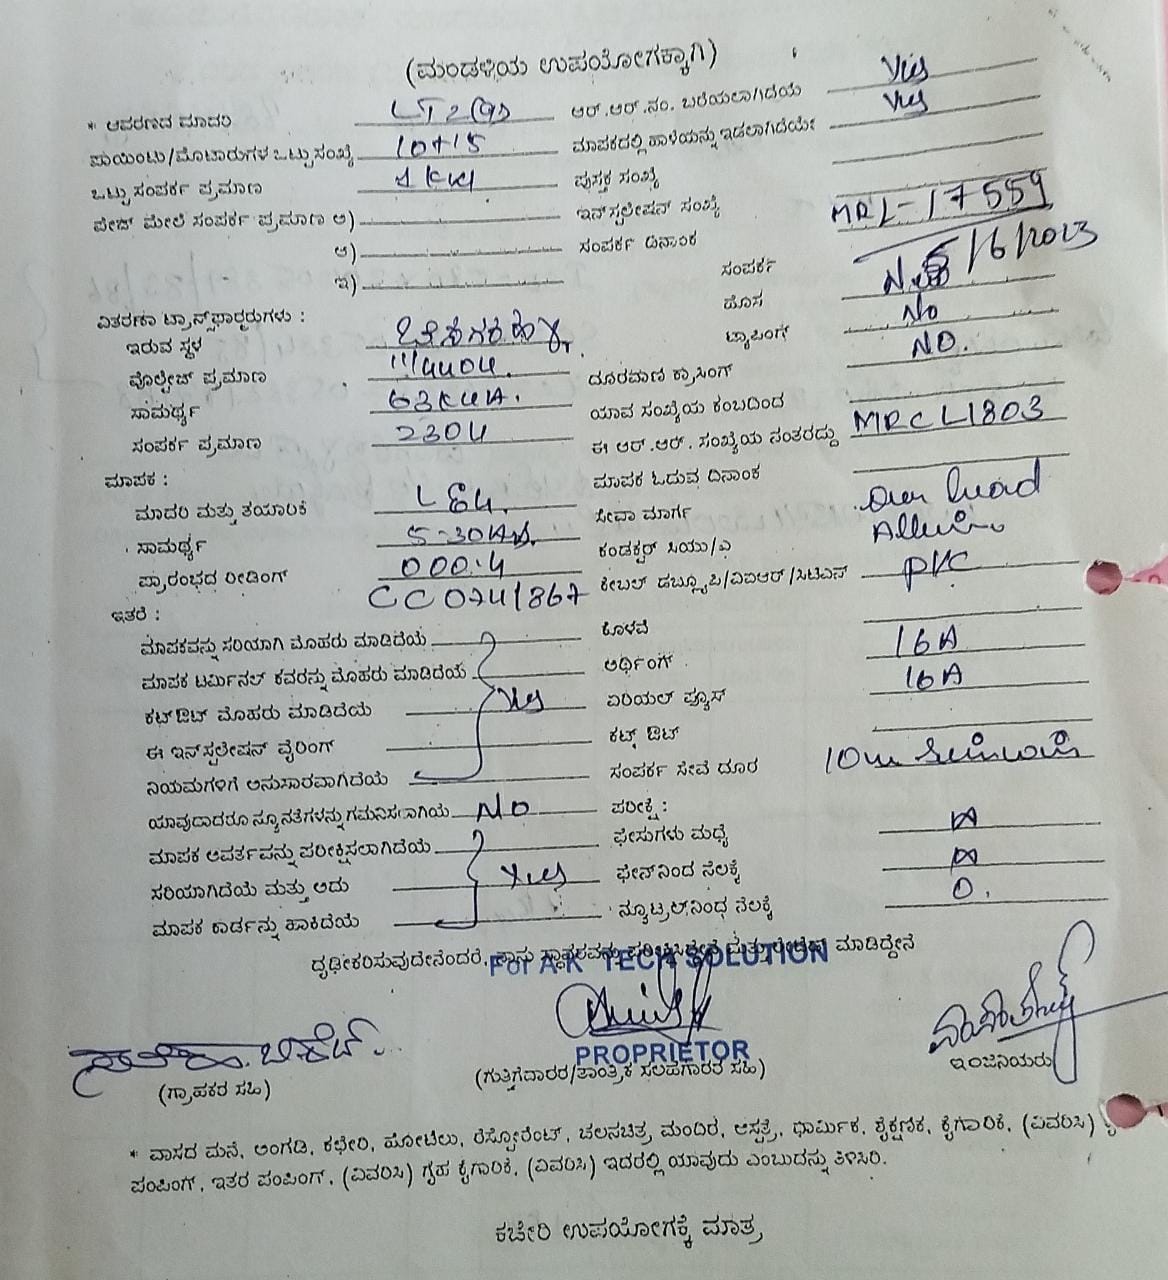 (ಮಂಡಳಿಯ ಉಪಯೋಗಕ್ಕಾಗಿ)
* ಆವರಣದ ಮಾದರಿ LT2 ಆರ್.ಆರ್.ನಂ. ಬರೆಯಲಾಗಿದೆಯೆ Yes
ಪಾಯಿಂಟು/ಮೋಟಾರುಗಳ ಒಟ್ಟು ಸಂಖ್ಯೆ 10+15 ಮಾಪಕದಲ್ಲಿ ಹಾಳೆಯನ್ನು ಇಡಲಾಗಿದೆಯೇ Yes
ಒಟ್ಟು ಸಂಪರ್ಕ ಪ್ರಮಾಣ 1 KW ಪುಸ್ತಕ ಸಂಖ್ಯೆ
ಪೇಜ್ ಮೇಲೆ ಸಂಪರ್ಕ ಪ್ರಮಾಣ ಅ) ಇನ್‌ಸ್ಟಲೇಷನ್ ಸಂಖ್ಯೆ MRL-17559
ಆ) ಸಂಪರ್ಕ ದಿನಾಂಕ 5/6/2023
ಇ) ಸಂಪರ್ಕ
ವಿತರಣಾ ಟ್ರಾನ್ಸ್‌ಫಾರ್ಮರುಗಳು : ಹೊಸ No
ಇರುವ ಸ್ಥಳ ಟ್ಯಾಪಿಂಗ್ NO.
ವೊಲ್ಟೇಜ್ ಪ್ರಮಾಣ 11/440V. ದೂರವಾಣಿ ಕ್ರಾಸಿಂಗ್
ಸಾಮರ್ಥ್ಯ 63KVA. ಯಾವ ಸಂಖ್ಯೆಯ ಕಂಬದಿಂದ
ಸಂಪರ್ಕ ಪ್ರಮಾಣ 230V ಈ ಆರ್.ಆರ್. ಸಂಖ್ಯೆಯ ನಂತರದ್ದು MRCL1803
ಮಾಪಕ : ಮಾಪಕ ಓದುವ ದಿನಾಂಕ
ಮಾದರಿ ಮತ್ತು ತಯಾರಿಕೆ ಸೇವಾ ಮಾರ್ಗ Over head
ಸಾಮರ್ಥ್ಯ 5-30 ಕಂಡಕ್ಟರ್ ಸಿಯು/ಎ
ಪ್ರಾರಂಭದ ರೀಡಿಂಗ್ 000.4 ಕೇಬಲ್ ಡಬ್ಲ್ಯೂಪಿ/ವಿಐಆರ್/ಸಿಟಿಎಸ್ PVC
ಇತರೆ : CC0741867
ಮಾಪಕವನ್ನು ಸರಿಯಾಗಿ ಮೊಹರು ಮಾಡಿದೆಯೆ ಕೊಳವೆ
ಮಾಪಕ ಟರ್ಮಿನಲ್ ಕವರನ್ನು ಮೊಹರು ಮಾಡಿದೆಯೆ ಅರ್ಥಿಂಗ್ 16A
ಕಟ್‌ಔಟ್ ಮೊಹರು ಮಾಡಿದೆಯೆ Yes ಏರಿಯಲ್ ಪ್ಯೂಸ್ 16A
ಈ ಇನ್‌ಸ್ಟಲೇಷನ್ ವೈರಿಂಗ್ ಕಟ್ಸ್ ಔಟ್
ನಿಯಮಗಳಿಗೆ ಅನುಸಾರವಾಗಿದೆಯೆ ಸಂಪರ್ಕ ಸೇವೆ ದೂರ 10m
ಯಾವುದಾದರೂ ನ್ಯೂನತೆಗಳನ್ನು ಗಮನಿಸಲಾಗಿಯೆ No ಪರೀಕ್ಷೆ :
ಮಾಪಕ ಆವರ್ತವನ್ನು ಪರೀಕ್ಷಿಸಲಾಗಿದೆಯೆ ಫೇಸುಗಳು ಮಧ್ಯೆ
ಸರಿಯಾಗಿದೆಯೆ ಮತ್ತು ಅದು Yes ಫೇಸ್‌ನಿಂದ ನೆಲಕ್ಕೆ
ಮಾಪಕ ಕಾರ್ಡನ್ನು ಹಾಕಿದೆಯೆ ನ್ಯೂಟ್ರಲ್‌ನಿಂಧ ನೆಲಕ್ಕೆ 0.
ದೃಢೀಕರಿಸುವುದೇನೆಂದರೆ, ನಾನು ಸ್ಥಾವರವನ್ನು ಪರೀಕ್ಷಿಸಿದ್ದೇನೆ ಮತ್ತು ಮಾಡಿದ್ದೇನೆ
For A K TECH SOLUTION
PROPRIETOR
(ಗ್ರಾಹಕರ ಸಹಿ) (ಗುತ್ತಿಗೆದಾರರ/ತಾಂತ್ರಿಕ ಸಲಹೆಗಾರರ ಸಹಿ) ಇಂಜಿನಿಯರು
* ವಾಸದ ಮನೆ, ಅಂಗಡಿ, ಕಛೇರಿ, ಹೋಟೆಲು, ರೆಸ್ಟೋರೆಂಟ್, ಚಲನಚಿತ್ರ ಮಂದಿರ, ಆಸ್ಪತ್ರೆ, ಧಾರ್ಮಿಕ, ಶೈಕ್ಷಣಿಕ, ಕೈಗಾರಿಕೆ, (ವಿವರಿಸಿ)
ಪಂಪಿಂಗ್, ಇತರ ಪಂಪಿಂಗ್, (ವಿವರಿಸಿ) ಗೃಹ ಕೈಗಾರಿಕೆ, (ವಿವರಿಸಿ) ಇದರಲ್ಲಿ ಯಾವುದು ಎಂಬುದನ್ನು ತಿಳಿಸಿರಿ.
ಕಚೇರಿ ಉಪಯೋಗಕ್ಕೆ ಮಾತ್ರ